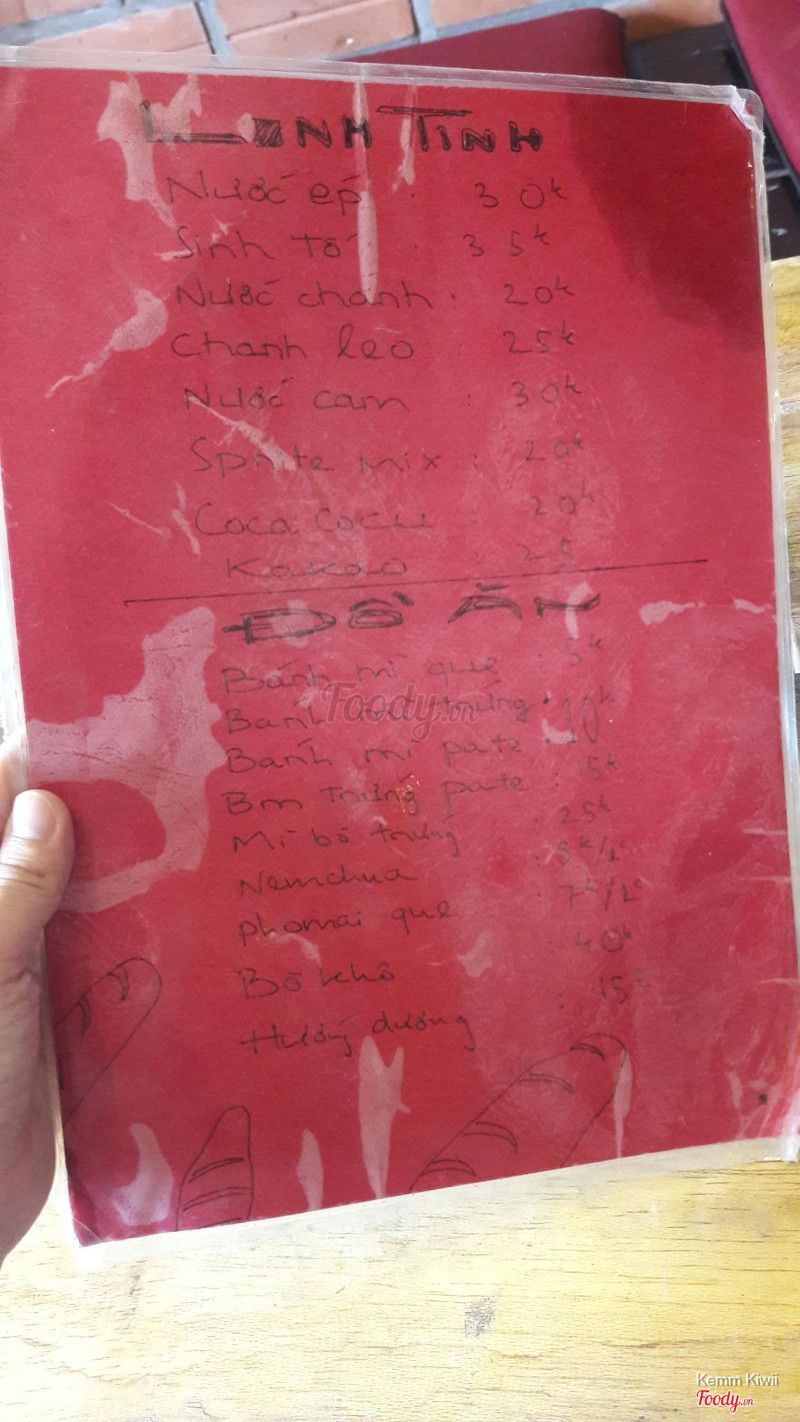 LINH TINH
Nước ép : 30k
Sinh tố : 35k
Nước chanh : 20k
Chanh leo : 25k
Nước cam : 30k
Sprite mix : 20k
Coca : 20k
Kakao : 25
ĐỒ ĂN
Bánh mì que : 5k
Banh trứng : 10k
Banh mì pate :
Bm trứng pate : 15k
Mì bò trứng : 25k
Nemchua : 5k/1c
phomai que : 7k/1c
Bò khô : 40k
Hướng dương : 15k
Foody.vn
Kemm Kiwii
Foody.vn